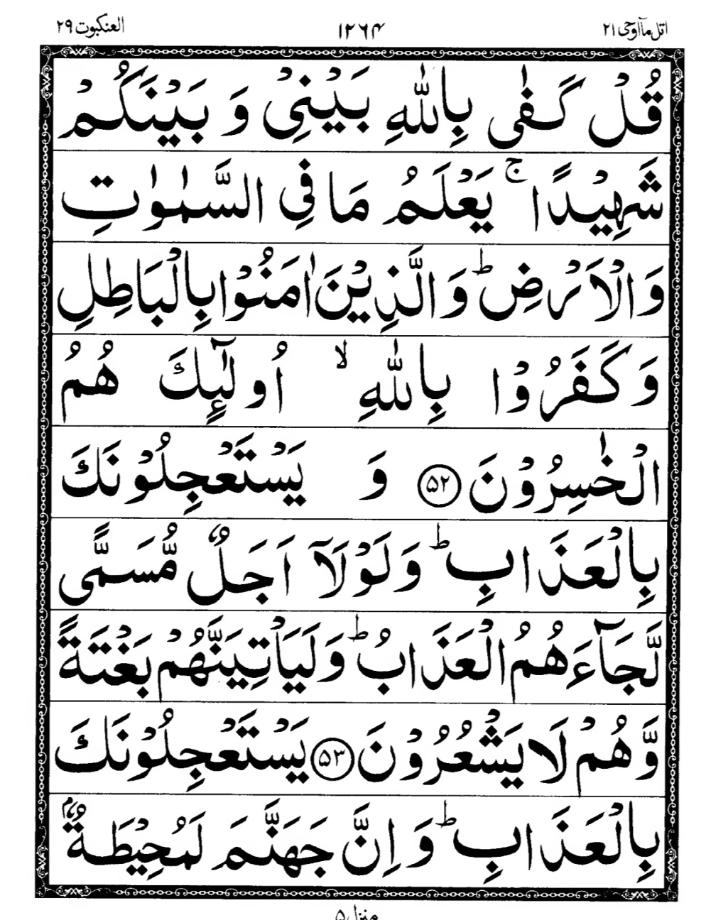 اتل مآاوحی ۲۱ ۱۲۶۴ العنکبوت ۲۹
قُلْ كَفٰى بِاللّٰهِ بَيْنِيْ وَ بَيْنَكُمْ
شَهِيْدًا ۚ يَعْلَمُ مَا فِي السَّمٰوٰتِ
وَالْاَرْضِ ؕ وَالَّذِيْنَ اٰمَنُوْا بِالْبَاطِلِ
وَكَفَرُوْا بِاللّٰهِ ۙ اُولٰٓئِكَ هُمُ
الْخٰسِرُوْنَ ﴿۵۲﴾ وَ يَسْتَعْجِلُوْنَكَ
بِالْعَذَابِ ؕ وَلَوْلَاۤ اَجَلٌ مُّسَمًّى
لَّجَآءَهُمُ الْعَذَابُ ؕ وَلَيَاْتِيَنَّهُمْ بَغْتَةً
وَّهُمْ لَا يَشْعُرُوْنَ ﴿۵۳﴾ يَسْتَعْجِلُوْنَكَ
بِالْعَذَابِ ؕ وَاِنَّ جَهَنَّمَ لَمُحِيْطَةٌۢ
منزل ۵